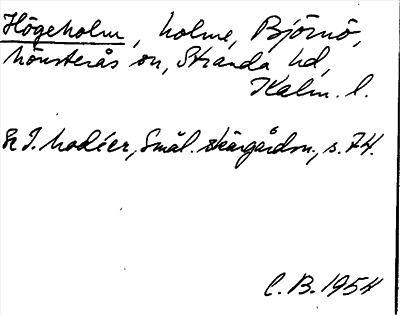 Högeholm, holme, Björnö,
Mönsterås sn, Stranda hd,
Kalm. l.
I. Modéer, Smål. skärgårdsn., s. 74.
C. B. 1954